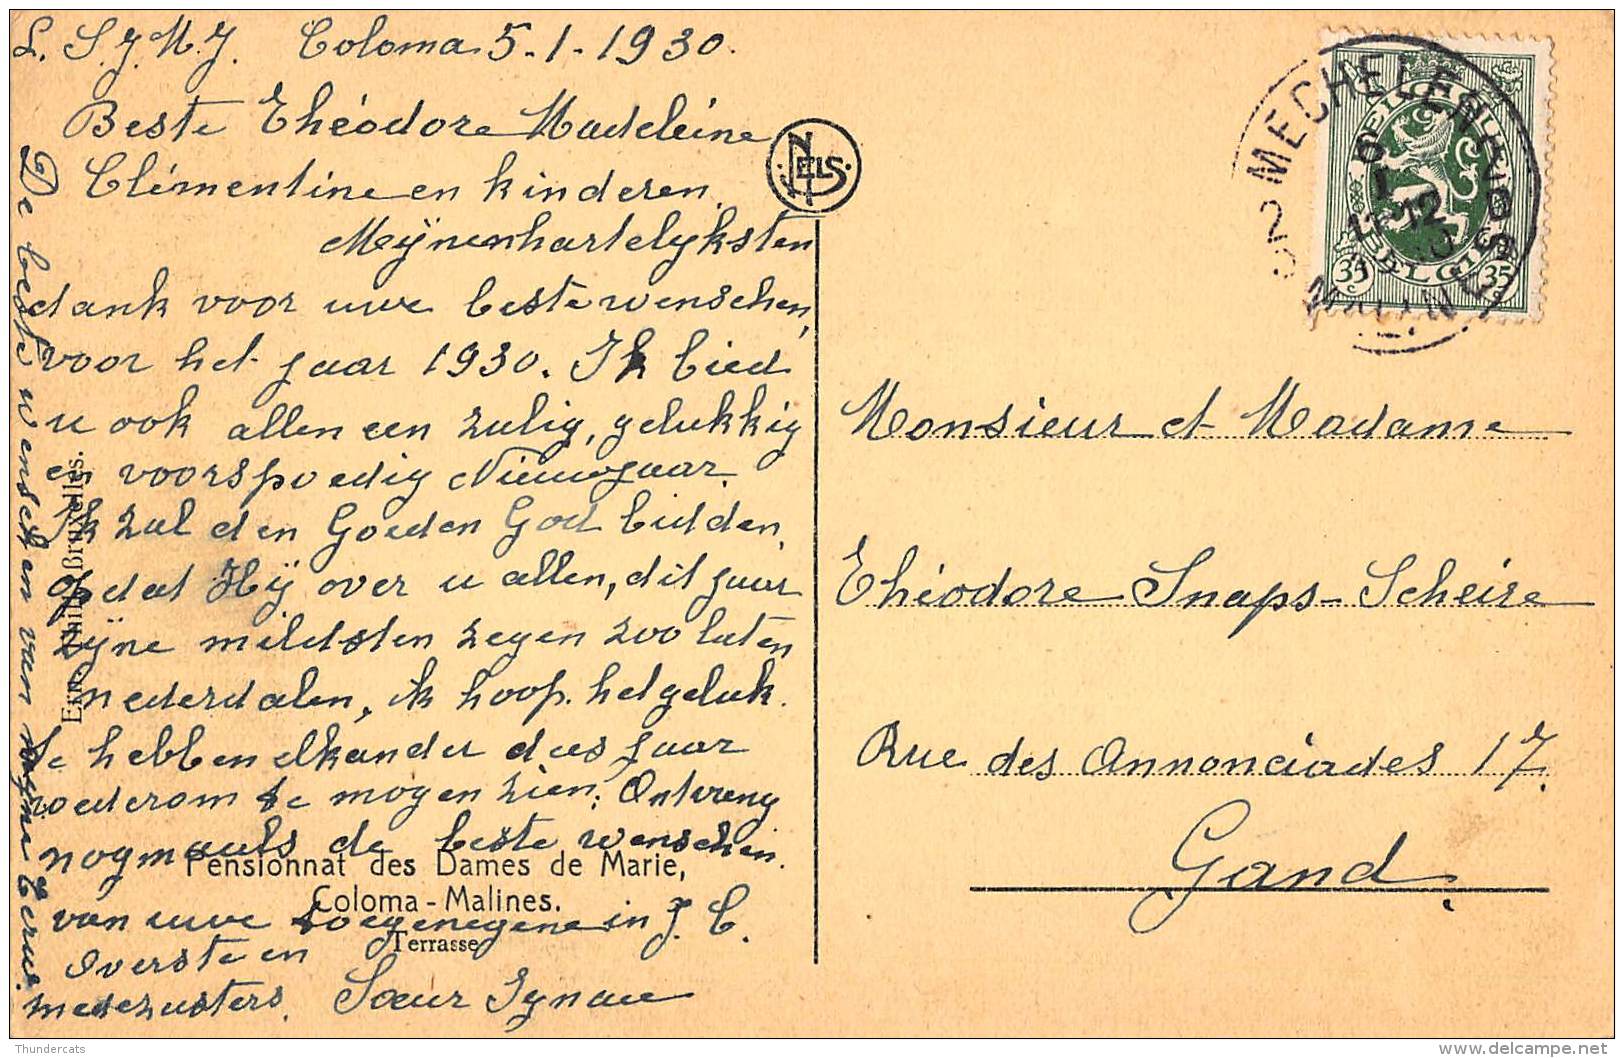 L. S. J. M. J. Coloma 5-1-1930.
Beste Théodore Madeleine
Clémentine en kinderen.
Mÿnen hartelyksten
dank voor uwe beste wenschen,
voor het jaar 1930. Ik bied
u ook allen een zalig, gelukkig
en voorspoedig Nieuwjaar.
Ik zal den Goeden God bidden,
opdat Hÿ over u allen, dit jaar
zÿne mildsten zegen zoo laten
nederdalen, ik hoop het geluk
te hebben elkander dees jaar
wederom te mogen zien; Ontvang
nogmaals de beste wenschen.
van uwe toegenegene in J. C.
Overste en
medezusters. Sœur
De beste wenschen van mÿne Eerw.
Ern. Thill, Bruxelles.
Pensionnat des Dames de Marie,
Coloma - Malines.
Terrasse
NELS
MECHELEN
MALINES
6
1
11-12
BELGIË
BELGIQUE
35
35
Monsieur et Madame
Théodore Snaps-Scheire
Rue des Annonciades 17.
Gand.
Thundercats
www.delcampe.net